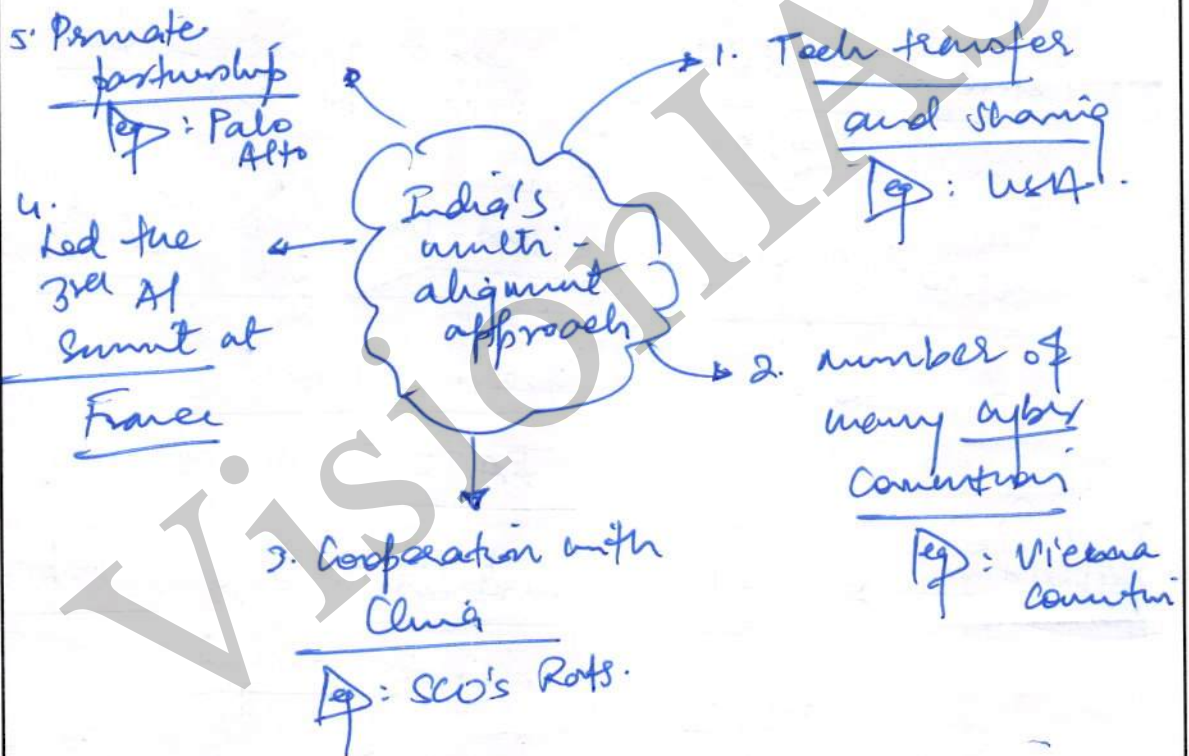 5. Private
partnership
eg : Palo
Alto
1. Tech transfer
and sharing
eg : USA.
India's
multi-
alignment
approach
4.
Led the
3rd AI
Summit at
France
2. number of
many cyber
Convention
eg : Vienna
Convention
3. Cooperation with
China
eg : SCO's Rats.
VisionIAS